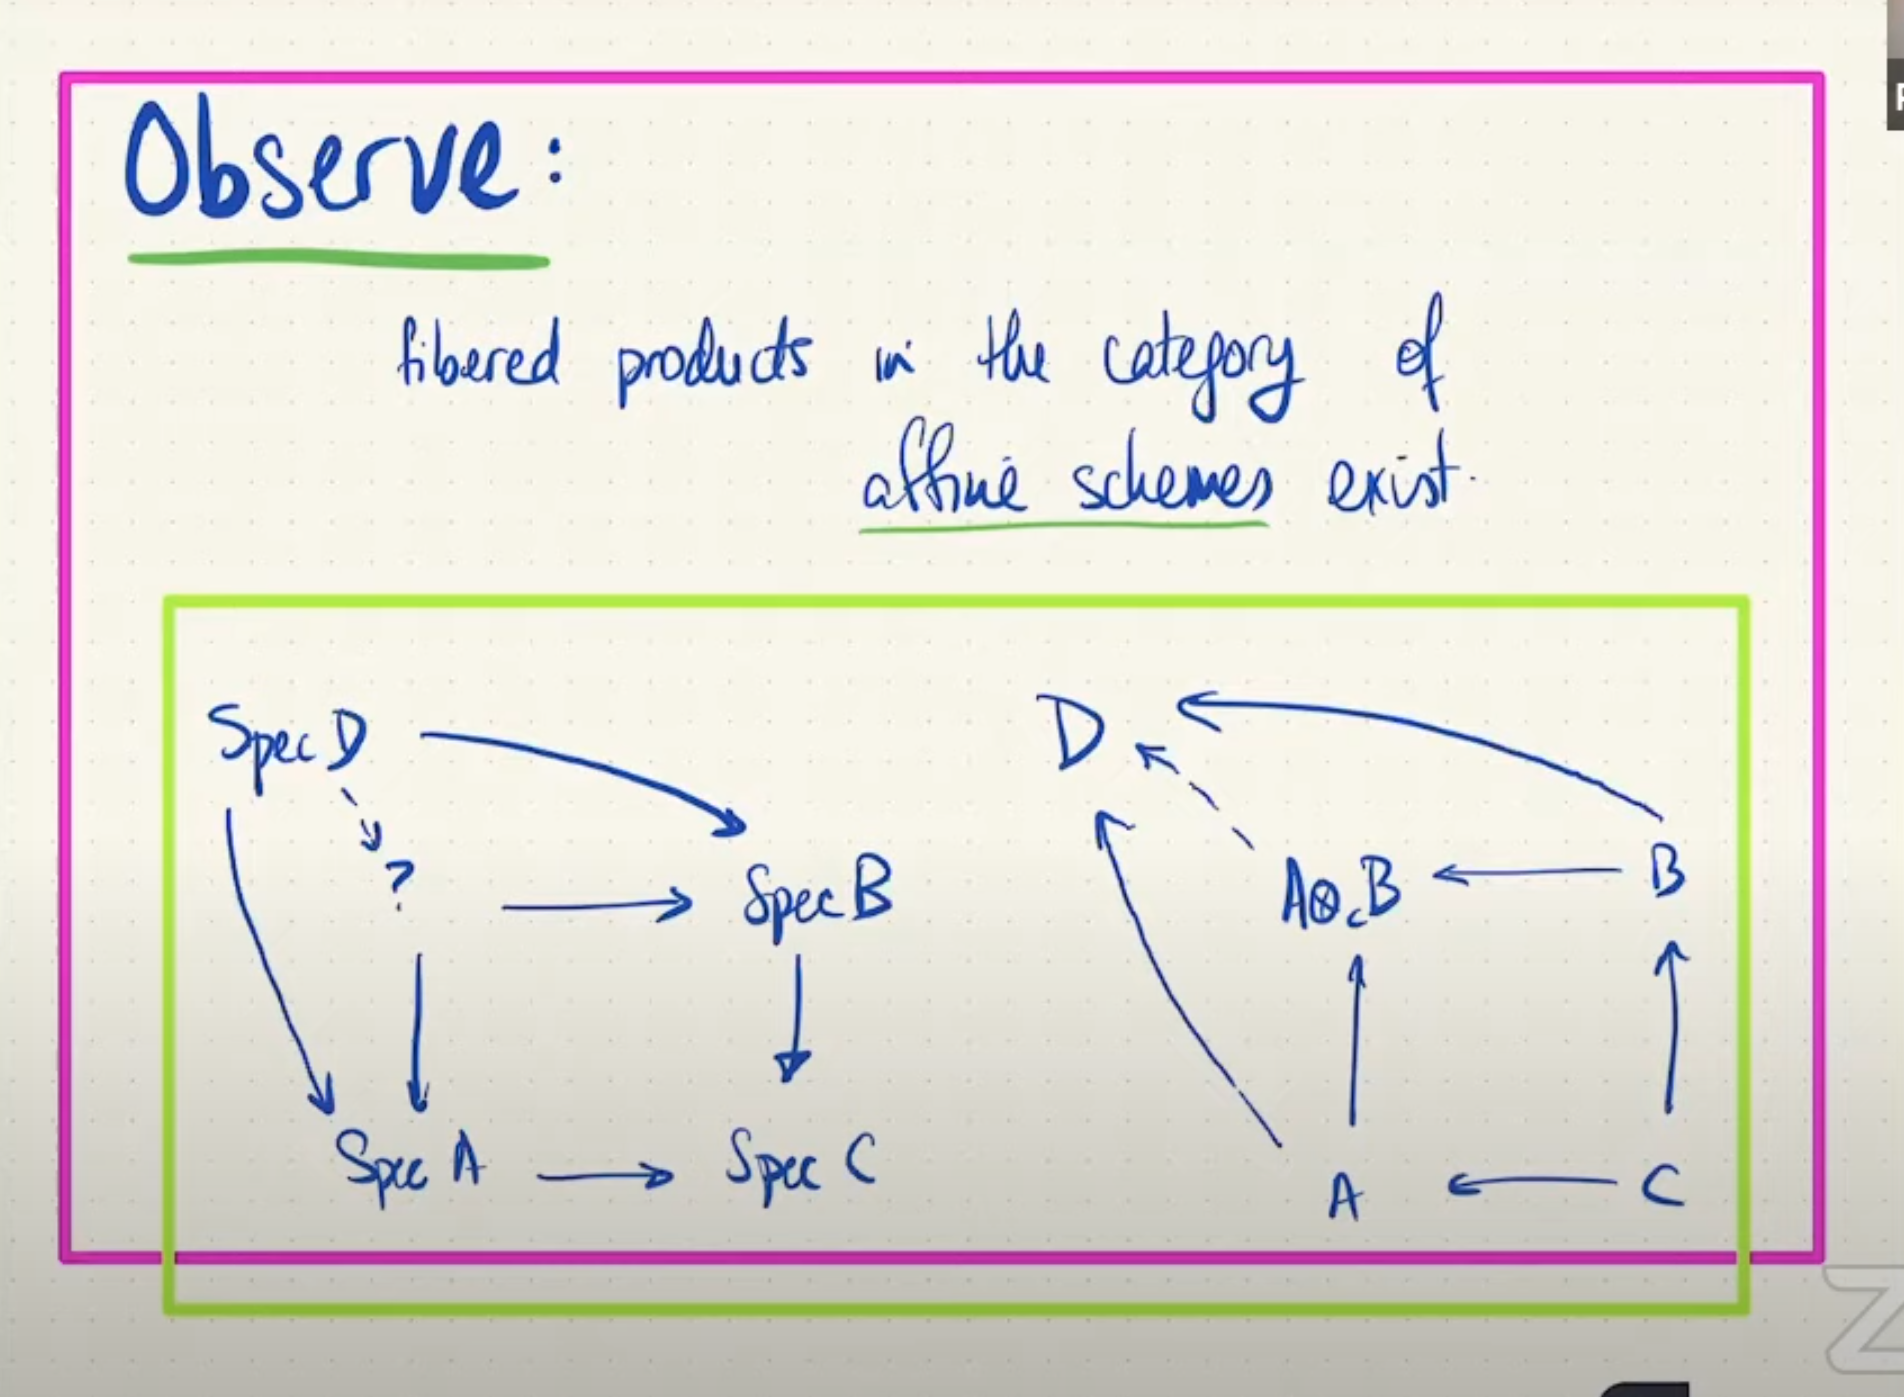 Observe:
fibered products in the category of
affine schemes exist.
Spec D
?
Spec B
Spec A
Spec C
D
A⊗_C B
B
A
C